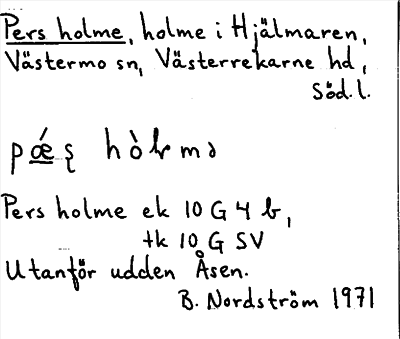 Pers holme, holme i Hjälmaren,
Västermo sn, Västerrekarne hd,
Söd.l.
Pers holme ek 10 G 4 b,
tk 10 G SV
Utanför udden Åsen.
B. Nordström 1971